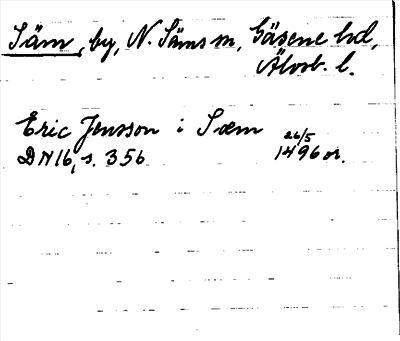 Säm, by, N. Säms sn, Gäsene hd,
Älvsb. l.
Eric Jensson i Sæm 26/5
DN 16, s. 356 1496 or.